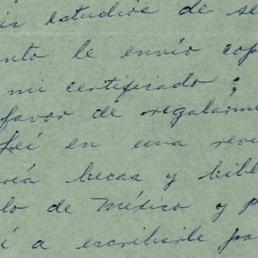 estudios de se
nto le envío cop
mi certificado;
favor de regalarme
Leí en una rev
becas y bibl
lo de México y p
é a escribirle pa